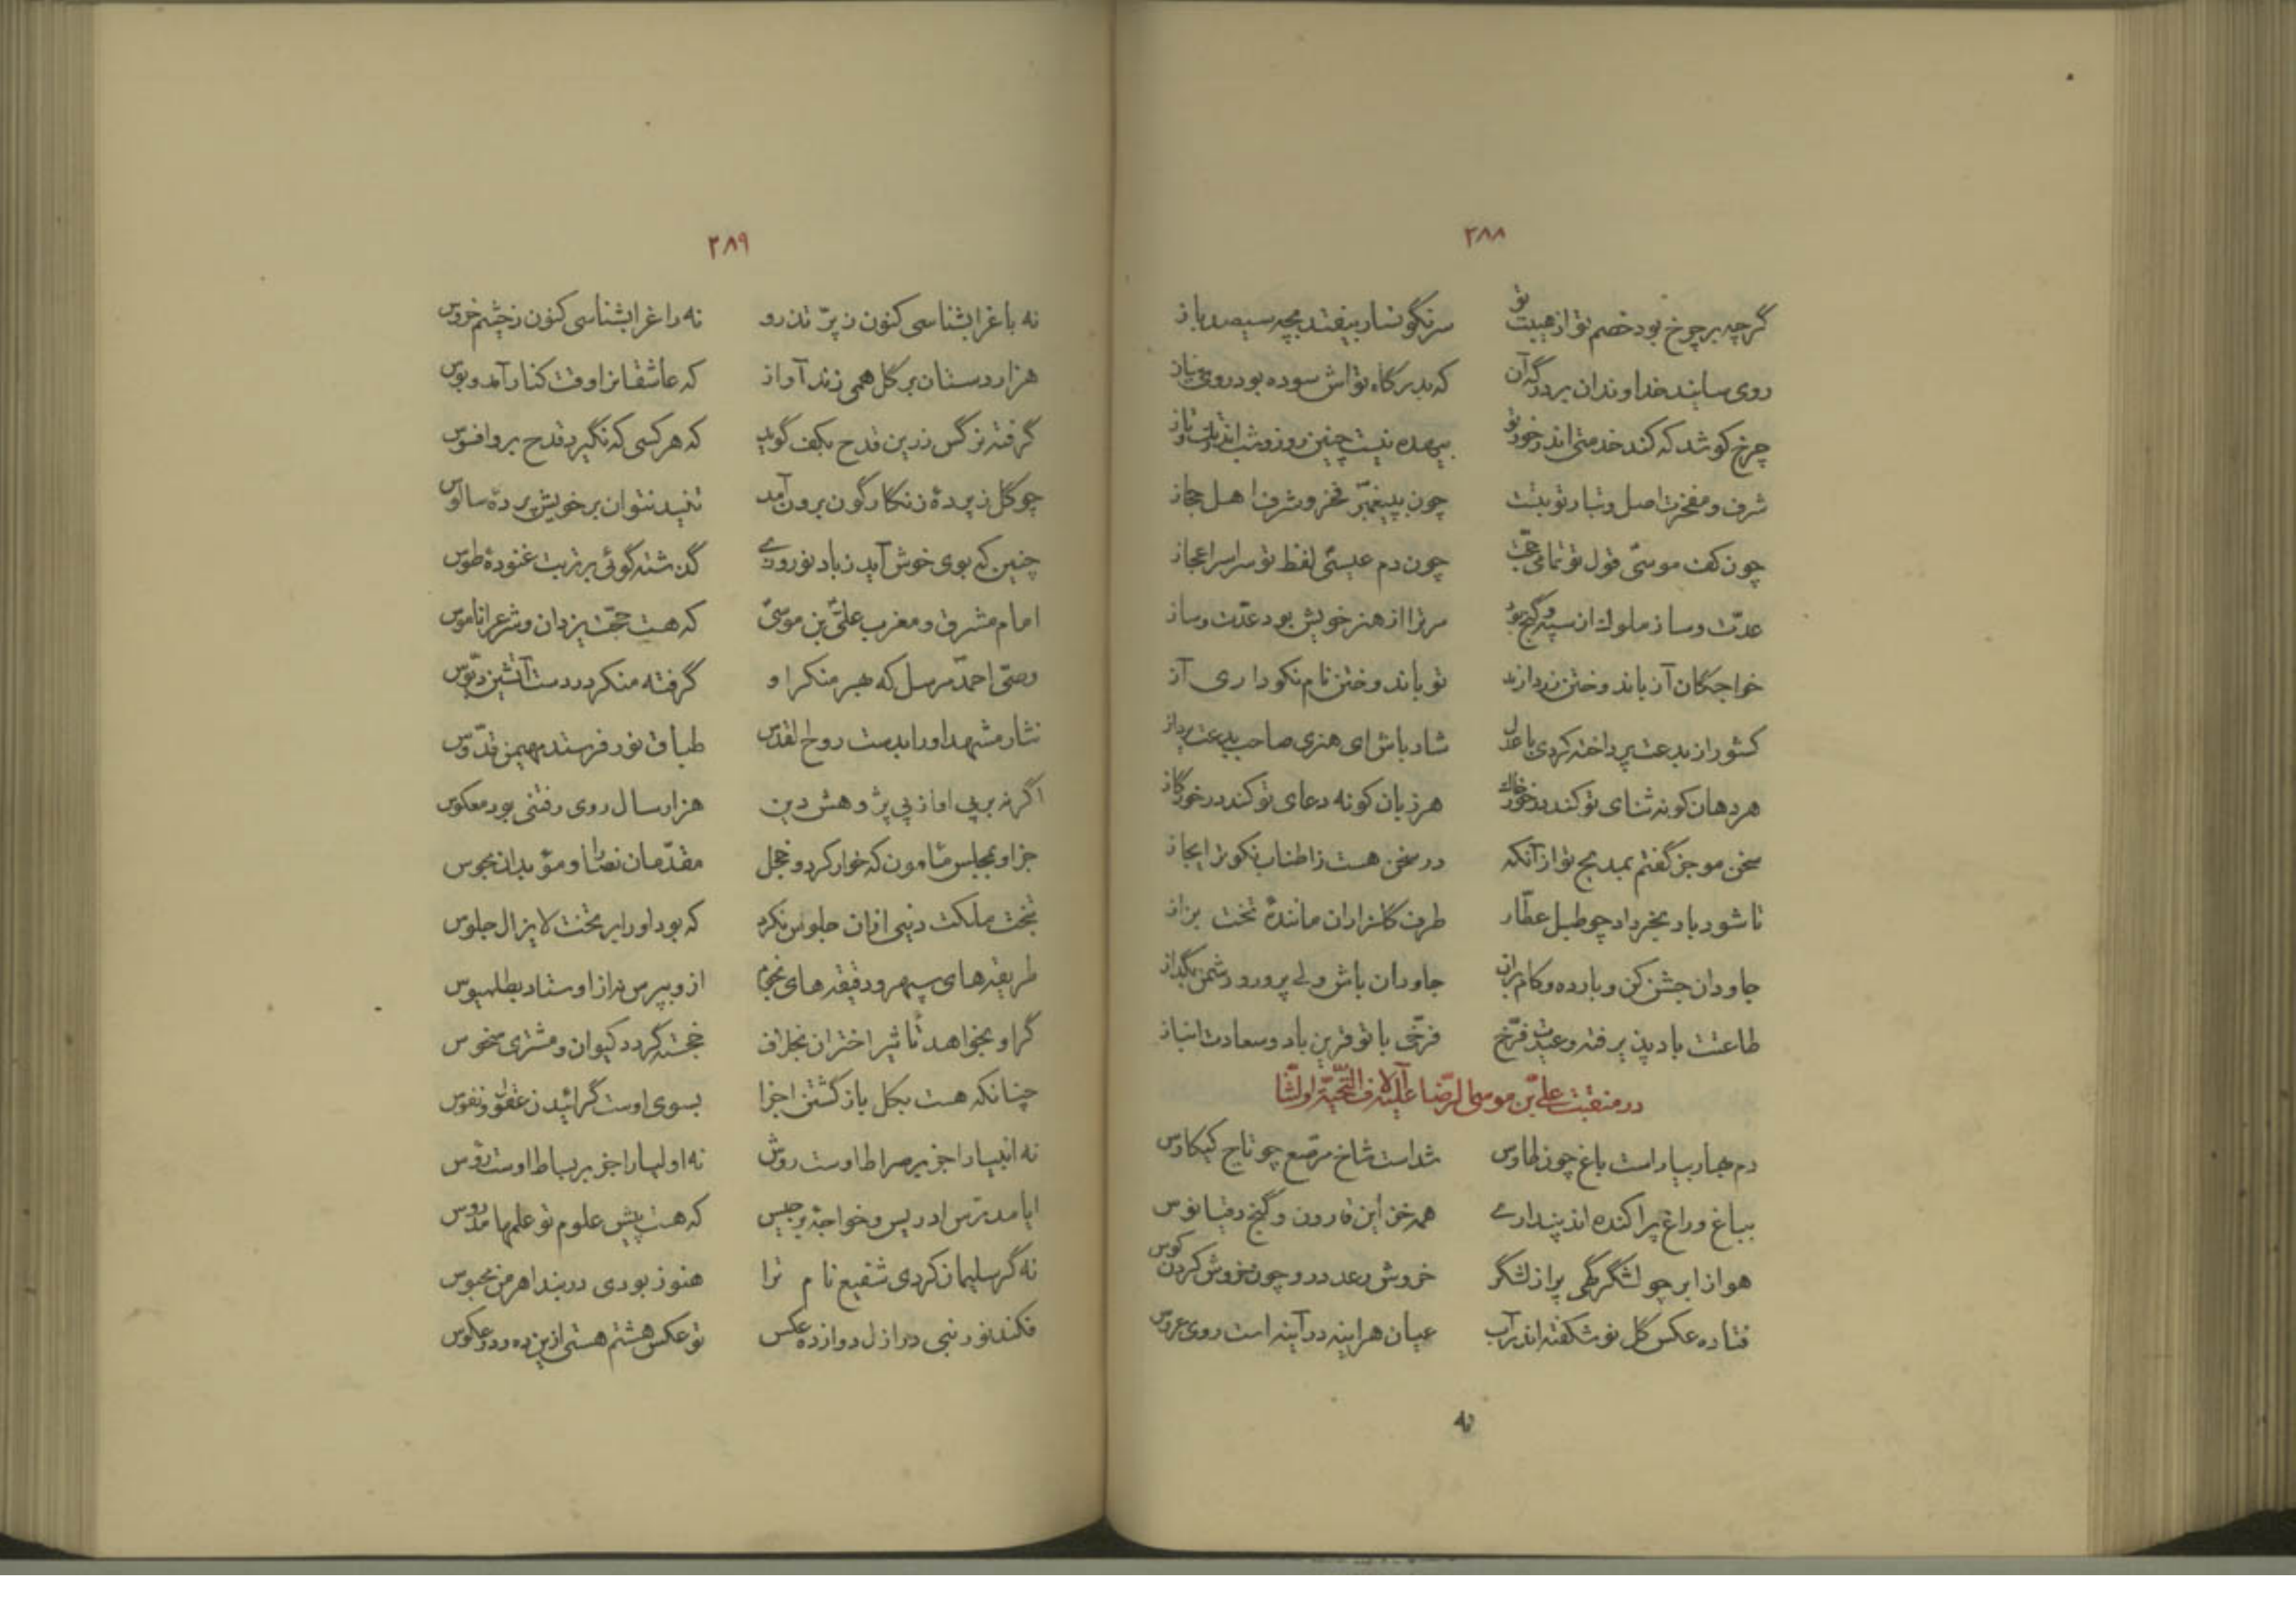 ۲۸۸
گرچه بر چرخ بود خصم تو از هیبت تو سرنگونسار بیفتد بچه سیصد باز
روی سایند خداوندان بر درگه آن که بدرگاه تو اش سوده بود روی نیاز
چرخ کوشد که کند خدمتی اندر خور تو بیهده نیست چنین روز و شب اندر تک و تاز
شرف و مفخرت اصل و تبار تو بتست چون بپیغمبر فخر و شرف اهل حجاز
چون کف موسی قول تو تمامی حجت چون دم عیسی لفظ تو سراسر اعجاز
عدت و ساز ملوک از سپه و گنج بود مر ترا از هنر خویش بود عدت و ساز
خواجگان آز باندوختن زر دارند تو باندوختن نام نکو داری آز
کشور از بدعت پرداخته کردی با عدل شاد باش ای هنری صاحب بدعت پرداز
هر دهان کو نه ثنای تو کند در خور خاک هر زبان کو نه دعای تو کند در خور گاز
سخن موجز گفتم بمدیح تو از آنکه در سخن هست ز اطناب نکوتر ایجاز
تا شود باد بخرداد چو طبل عطار طرف گلزاران مانندهٔ تخت بزاز
جاودان جشن کن و باده ده و کام بران جاودان باش ولی پرور و دشمن بگداز
طاعتت باد پذیرفته و عیدت فرخ فرخی با تو قرین باد و سعادت انباز
در منقبت علی بن موسی الرضا علیه آلاف التحیة والثنا
دم بهار بیاراست باغ چون طاوس شداست شاخ مرصع چو تاج کیکاوس
بباغ و راغ پراکنده اند پنداری همه خزاین قارون و گنج دقیانوس
هوا ز ابر چو لشگرگهی پر از لشگر خروش رعد در و چون خروش کردن کوس
فتاده عکس گل نو شکفته اندر آب عیان هر اینه در آینه است روی عروس
نه
۲۸۹
نه باغ را بشناسی کنون ز پر تذرو نه راغ را بشناسی کنون ز چشم خروس
هزاردستان بر گل همی زند آواز که عاشقانرا وقت کنار آمد و بوس
گرفته نرگس زرین قدح بکف گوید که هر کسی که نگیرد قدح برو افسوس
چو گل ز پردهٔ زنگارگون برون آمد تنید نتوان بر خویش پردهٔ سالوس
چنین که بوی خوش آید ز باد نوروزی گذشته گوئی بر تربت غنودهٔ طوس
امام مشرق و مغرب علی بن موسی که هست حجت یزدان و شرع را ناموس
وصی احمد مرسل که بهر منکر او گرفته منکر در دست آتشین دبوس
نثار مشهد او را بدست روح القدس طباق نور فرستد مهیمن قدوس
اگر نه بر پی او از پی پژوهش دین هزار سال روی رفتنی بود معکوس
جز او بمجلس مأمون که خوار کرد و خجل مقدمان نصارا و مؤبدان مجوس
بتخت ملکت دنیی از آن جلوس نکرد که بود او را بر تخت لایزال جلوس
طریقه‌های سپهر و دقیقه‌های نجوم ازو بپرس نه از اوستاد بطلمیوس
گر او بخواهد تأثیر اختران بخلاف خجسته گردد کیوان و مشتری منحوس
چنانکه هست بکل بازگشتن اجزا بسوی اوست گرائیدن عقول و نفوس
نه انبیا را جز بر صراط اوست روش نه اولیا را جز بر بساط اوست رؤس
ایا مدرس ادریس و خواجهٔ برجیس که هست پیش علوم تو علمها مدروس
نه گر سلیمان کردی شفیع نام ترا هنوز بودی در بند اهرمن محبوس
فکند نور نبی در ازل دوازده عکس تو عکس هشتم هستی ازین ده و دو عکوس